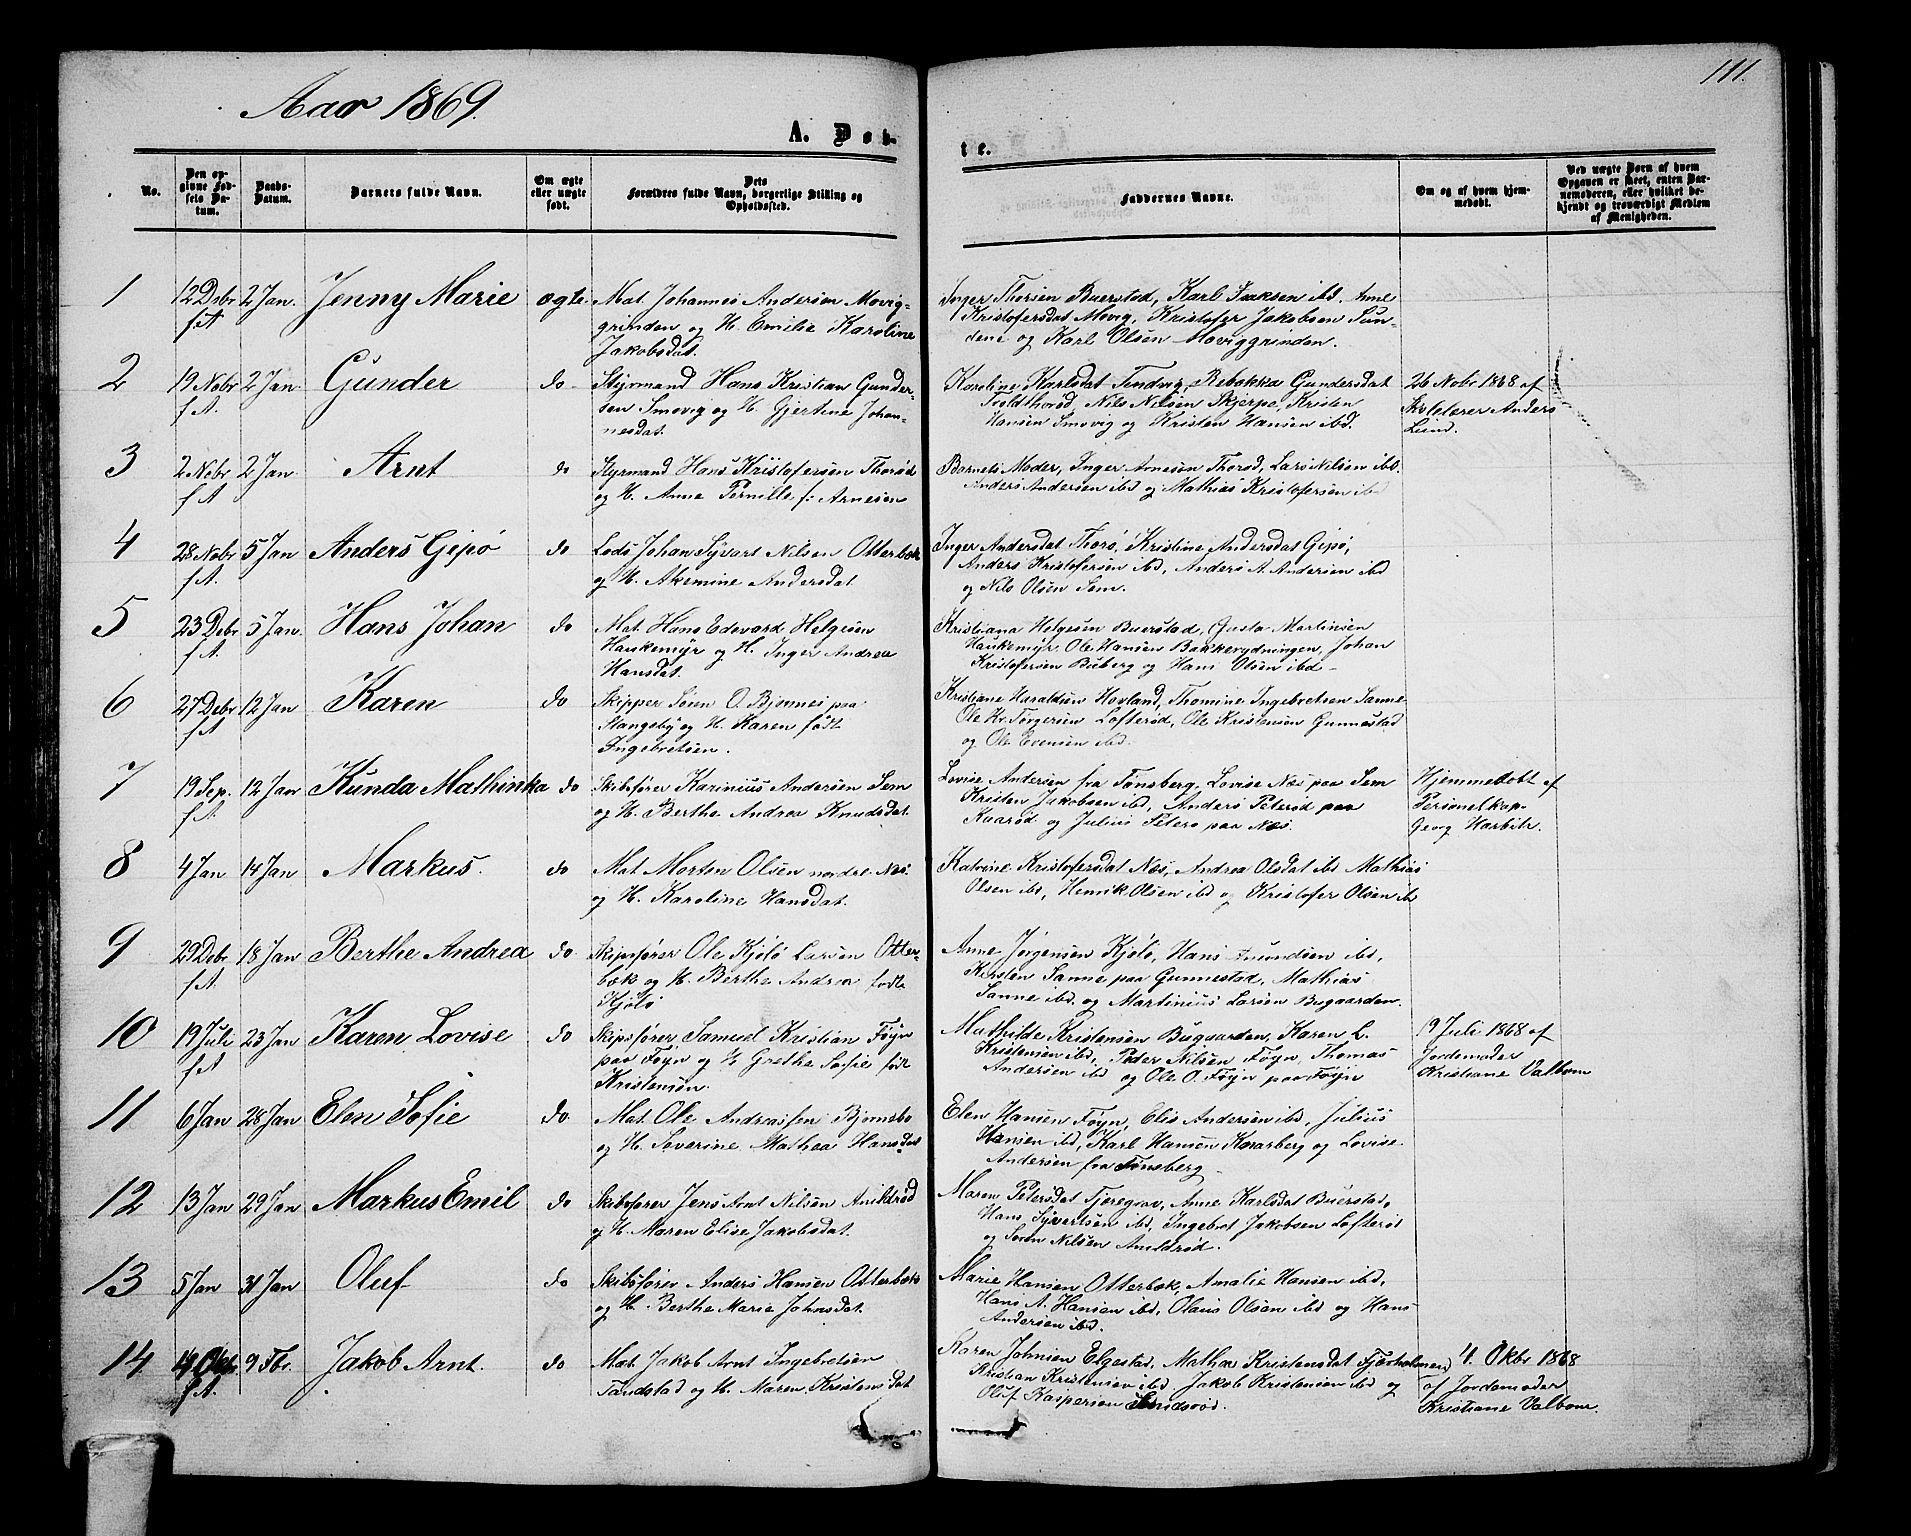 Aar 1869.
111.
A. Døb-
te.
No.
Den op-
givne Fød-
sels Da-
tum.
Daabs-
Datum.
Barnets fulde Navn.
Om ægte
eller uægte
født.
Dets
Forældres fulde Navn, borgerlige Stilling og
Opholdssted.
Faddernes Navne.
Om og af hvem hjem-
medøbt.
Ved uægte Børn af hvem
Opgaven er skeet, enten Bar-
nemoderen, eller hvilket be-
kjendt og troværdigt Medlem
af Menigheden.
1 12 Debr f A. 2 Jan. Jenny Marie ægte. Mat. Johannes Andersen Movig-
grinden og H. Emilie Karoline
Jakobsdat.
Inger Thorsen Buerstad, Karl Isaksen ibd. Anne
Kristofersdat Movig, Kristofer Jakobsen Sun-
dene og Karl Olsen Moviggrinden.
2 19 Nobr f A. 2 Jan. Gunder do Styrmand Hans Kristian Gunder-
sen Smovig og H. Gjertine Johan-
nesdat.
Karoline Karlsdat Tendvig, Rebekka Gundersdat
Toldthorød, Nils Nilsen Skjerpe, Kristen
Hansen Smovig og Kristen Hansen ibd.
26 Nobr 1868 af
Skolelærer Anders
Lund.
3 2 Nobr f A. 2 Jan Arnt do Styrmand Hans Kristofersen Thorød
og H. Anne Pernille f: Arnesen
Barnets Moder, Inger Arnesen Thorød, Lars Nilsen ibd.
Anders Andersen ibd og Mathias Kristofersen ibd
4 28 Nobr f A. 5 Jan Anders Gipø do Lods Johan Syvart Nilsen Otterbæk
og H. Akemine Andersdat
Inger Andersdat Thorø, Kristine Andersdat Gipø,
Anders Kristofersen ibd, Anders A. Andersen ibd
og Nils Olsen Sem.
5 23 Debr f A. 5 Jan. Hans Johan do Mat. Hans Edevard Helgesen
Haukemyr og H. Inger Andrea
Hansdat.
Kristiana Helgesen Buerstad, Gusta Martinsen
Haukemyr. Ole Hansen Bakkerydningen, Johan
Kristofersen Buberg og Hans Olsen ibd
6 27 Debr f A. 12 Jan Karen do Skipper Søren O. Bjønnes paa
Stangeby og H. Karen født
Ingebretsen.
Kristiane Haraldsen Hovland, Thomine Ingebretsen Sanne
Ole Kr. Torgersen Lofterød, Ole Kristensen Gunnestad
og Ole Evensen ibd.
7 19 Sep. f A. 12 Jan Kunda Mathinka do Skibsfører Karinius Andersen Sem
og H. Berthe Andrea Knudsdat.
Lovise Andersen fra Tønsberg, Lovise Næs paa Sem
Kristen Jakobsen ibd, Anders Peterød paa
Kaarød og Julius Peters paa Næs.
Hjemmedøbt af
Personelkap-
Georg Harbitz.
8 4 Jan 14 Jan Markus. do Mat Morten Olsen nordre Næs.
og H. Karoline Hansdat.
Katrine Kristofersdat Næs, Andrea Olsdat ibd Mathias
Olsen ibd, Henrik Olsen ibd og Kristofer Olsen ib
9 29 Debr f A. 18 Jan Berthe Andrea do Skipsfører Ole Kjølø Larsen Otter-
bæk og H. Berthe Andrea fødte
Kjølø
Anne Jørgensen Kjølø, Hans Amundsen ibd,
Kirsten Sanne paa Gunnestad, Mathias
Sanne ibd. og Martinius Larsen Bugaarden.
10 19 Juli f A 23 Jan Karen Lovise do Skipsfører Samuel Kristian Føyn
paa Føyn og H Grethe Sofie født
Kristensen.
Mathilde Kristensen Bugaarden, Karen L.
Kristensen ibd, Peder Nilsen Føyn, Thomas
Andersen ibd og Ole O. Føyn paa Føyn
19 Juli 1868 af
Jordemoder
Kristiane Valbom
11 6 Jan 28 Jan Elen Sofie do Mat. Ole Andreassen Bjønnebo
og H. Severine Mathea Hansdat
Elen Hansen Føyn, Elis Andersen ibd, Julius
Hansen ibd, Karl Hansen Knarberg og Lovise
Andersen fra Tønsberg
12 13 Jan 29 Jan Markus Emil do Skibsfører Jens Arnt Nilsen Arildsrød
og H. Maren Elise Jakobsdat.
Maren Petersdat Fjæregrav, Anne Karlsdat Buerstad,
Hans Syvertsen ibd, Ingebret Jakobsen Lofterød
og Søren Nilsen Arildsrød.
13 5 Jan 31 Jan Oluf do Skibsfører Anders Hansen Otterbæk
og H. Berthe Marie Johnsdat.
Marie Hansen Otterbæk, Amalie Hansen ibd,
Hans A. Hansen ibd, Olaus Olsen ibd og Hans
Andersen ibd.
14 4 Okt f A. 9 Fbr. Jakob Arnt. do Mat Jakob Arnt Ingebretsen
Tandstad og H. Maren Kristensdat
Karen Johnsen Elgestad, Mathea Kristensdat Fjærholmen
Kristian Kristensen ibd. Jakob Kristensen ibd og
Oluf Kaspersen Smidsrød.
4. Okbr 1868
af Jordemoder
Kristiane Valbom.